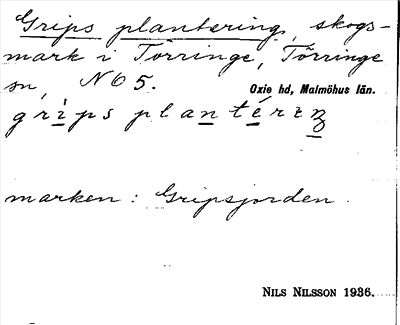 Grips plantering, skogs-
mark i Törringe, Törringe
sn, N65.
Oxie hd, Malmöhus län.
grips plantériŋ
marken: Gripsjorden.
NILS NILSSON 1936.